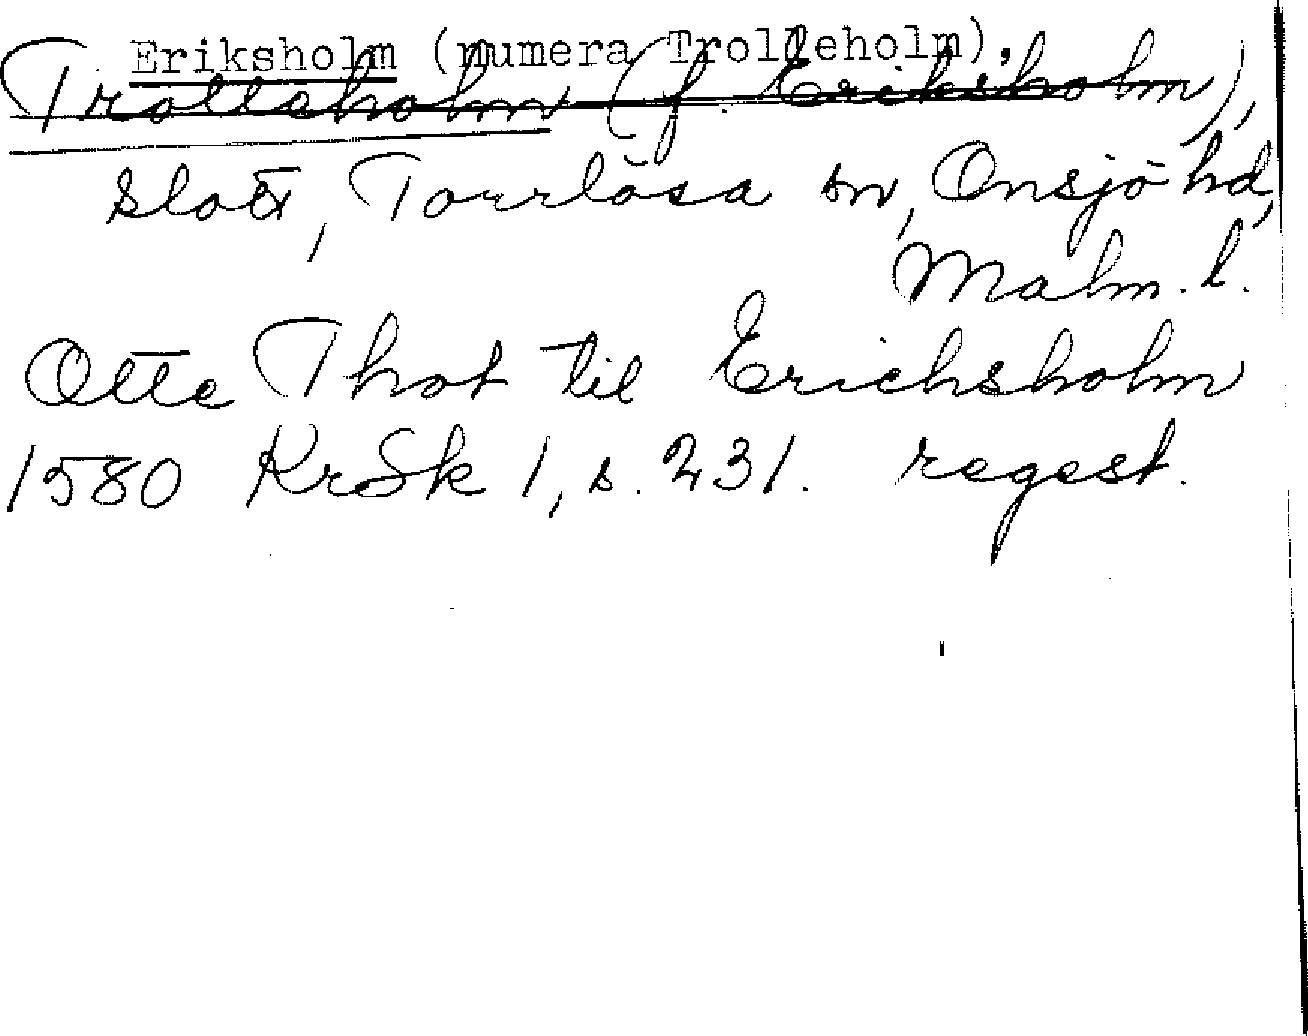 Eriksholm (numera Trolleholm),
Trolleholm (f. Eriksholm),
slott, Torrlösa sn, Onsjö hd,
Malm. l.
Otte Thot til Erichsholm
1580 KrSk 1, s. 231. regest.